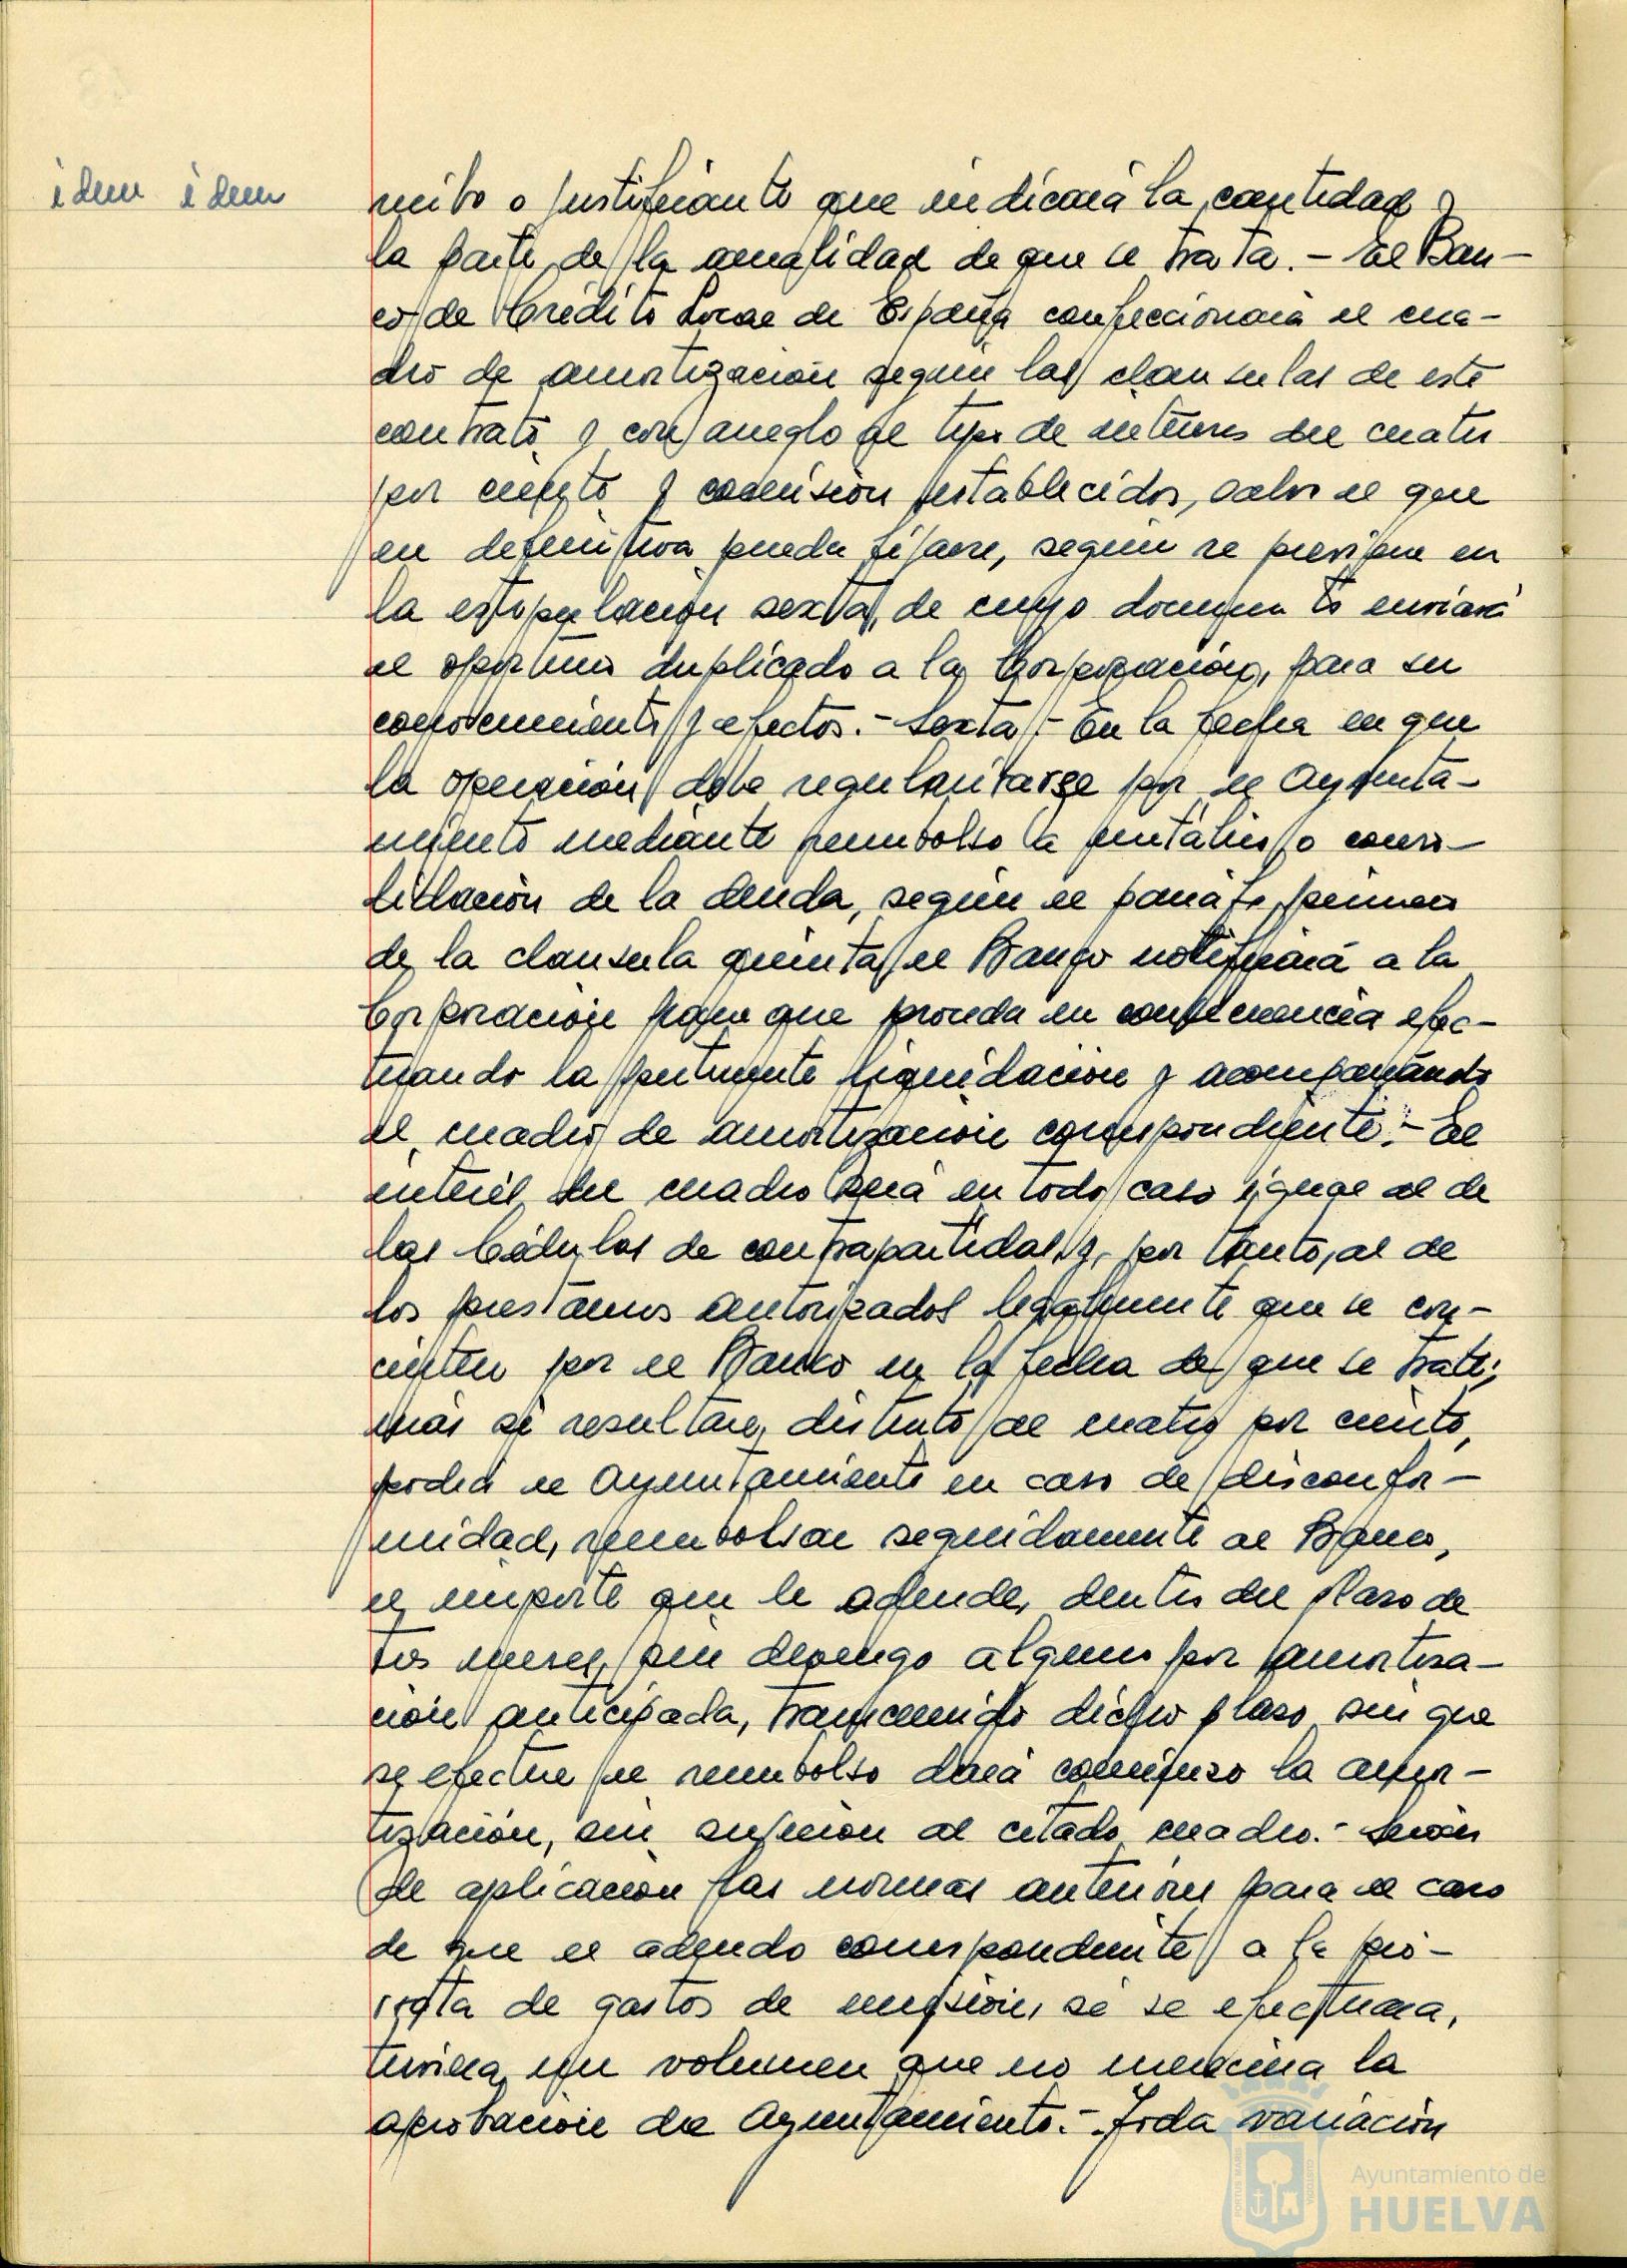 idem idem
recibo o justificante que indicará la cantidad y
la parte de la anualidad de que se trata.- El Ban-
co de Crédito Local de España confeccionará el cua-
dro de amortización según las clausulas de este
contrato y con arreglo al tipo de intereses del cuatro
por ciento y comisión establecidos, salvo el que
en definitiva pueda fijarse, según se previene en
la estipulación sexta, de cuyo documento enviará
el oportuno duplicado a la Corporación, para su
conocimiento y efectos.- Sexta.- En la fecha en que
la operación deba regularizarse por el Ayunta-
miento mediante reembolso a metálico o conso-
lidación de la deuda, según el parrafo primero
de la clausula quinta, el Banco notificará a la
Corporación para que proceda en consecuencia efec-
tuando la pertinente liquidación y acompañando
el cuadro de amortización correspondiente.- El
interés del cuadro será en todo caso igual al de
las Cédulas de contrapartidas y, por tanto, al de
los prestamos autorizados legalmente que se con-
cierten por el Banco en la fecha de que se trate;
mas si resultare distinto al cuatro por ciento,
podrá el Ayuntamiento en caso de disconfor-
midad, reembolsar seguidamente al Banco,
el importe que le adeude, dentro del plazo de
tres meses, sin devengo alguno por amortiza-
ción anticipada, transcurrido dicho plazo sin que
se efectue el reembolso dará comienzo la amor-
tización, con sujecion al citado cuadro.- Serán
de aplicacion las normas anteriores para el caso
de que el adeudo correspondiente a la pro-
rrata de gastos de emisión, si se efectuara,
tuviera un volumen que no mereciera la
aprobacion del Ayuntamiento.- Toda variación
Ayuntamiento de
HUELVA